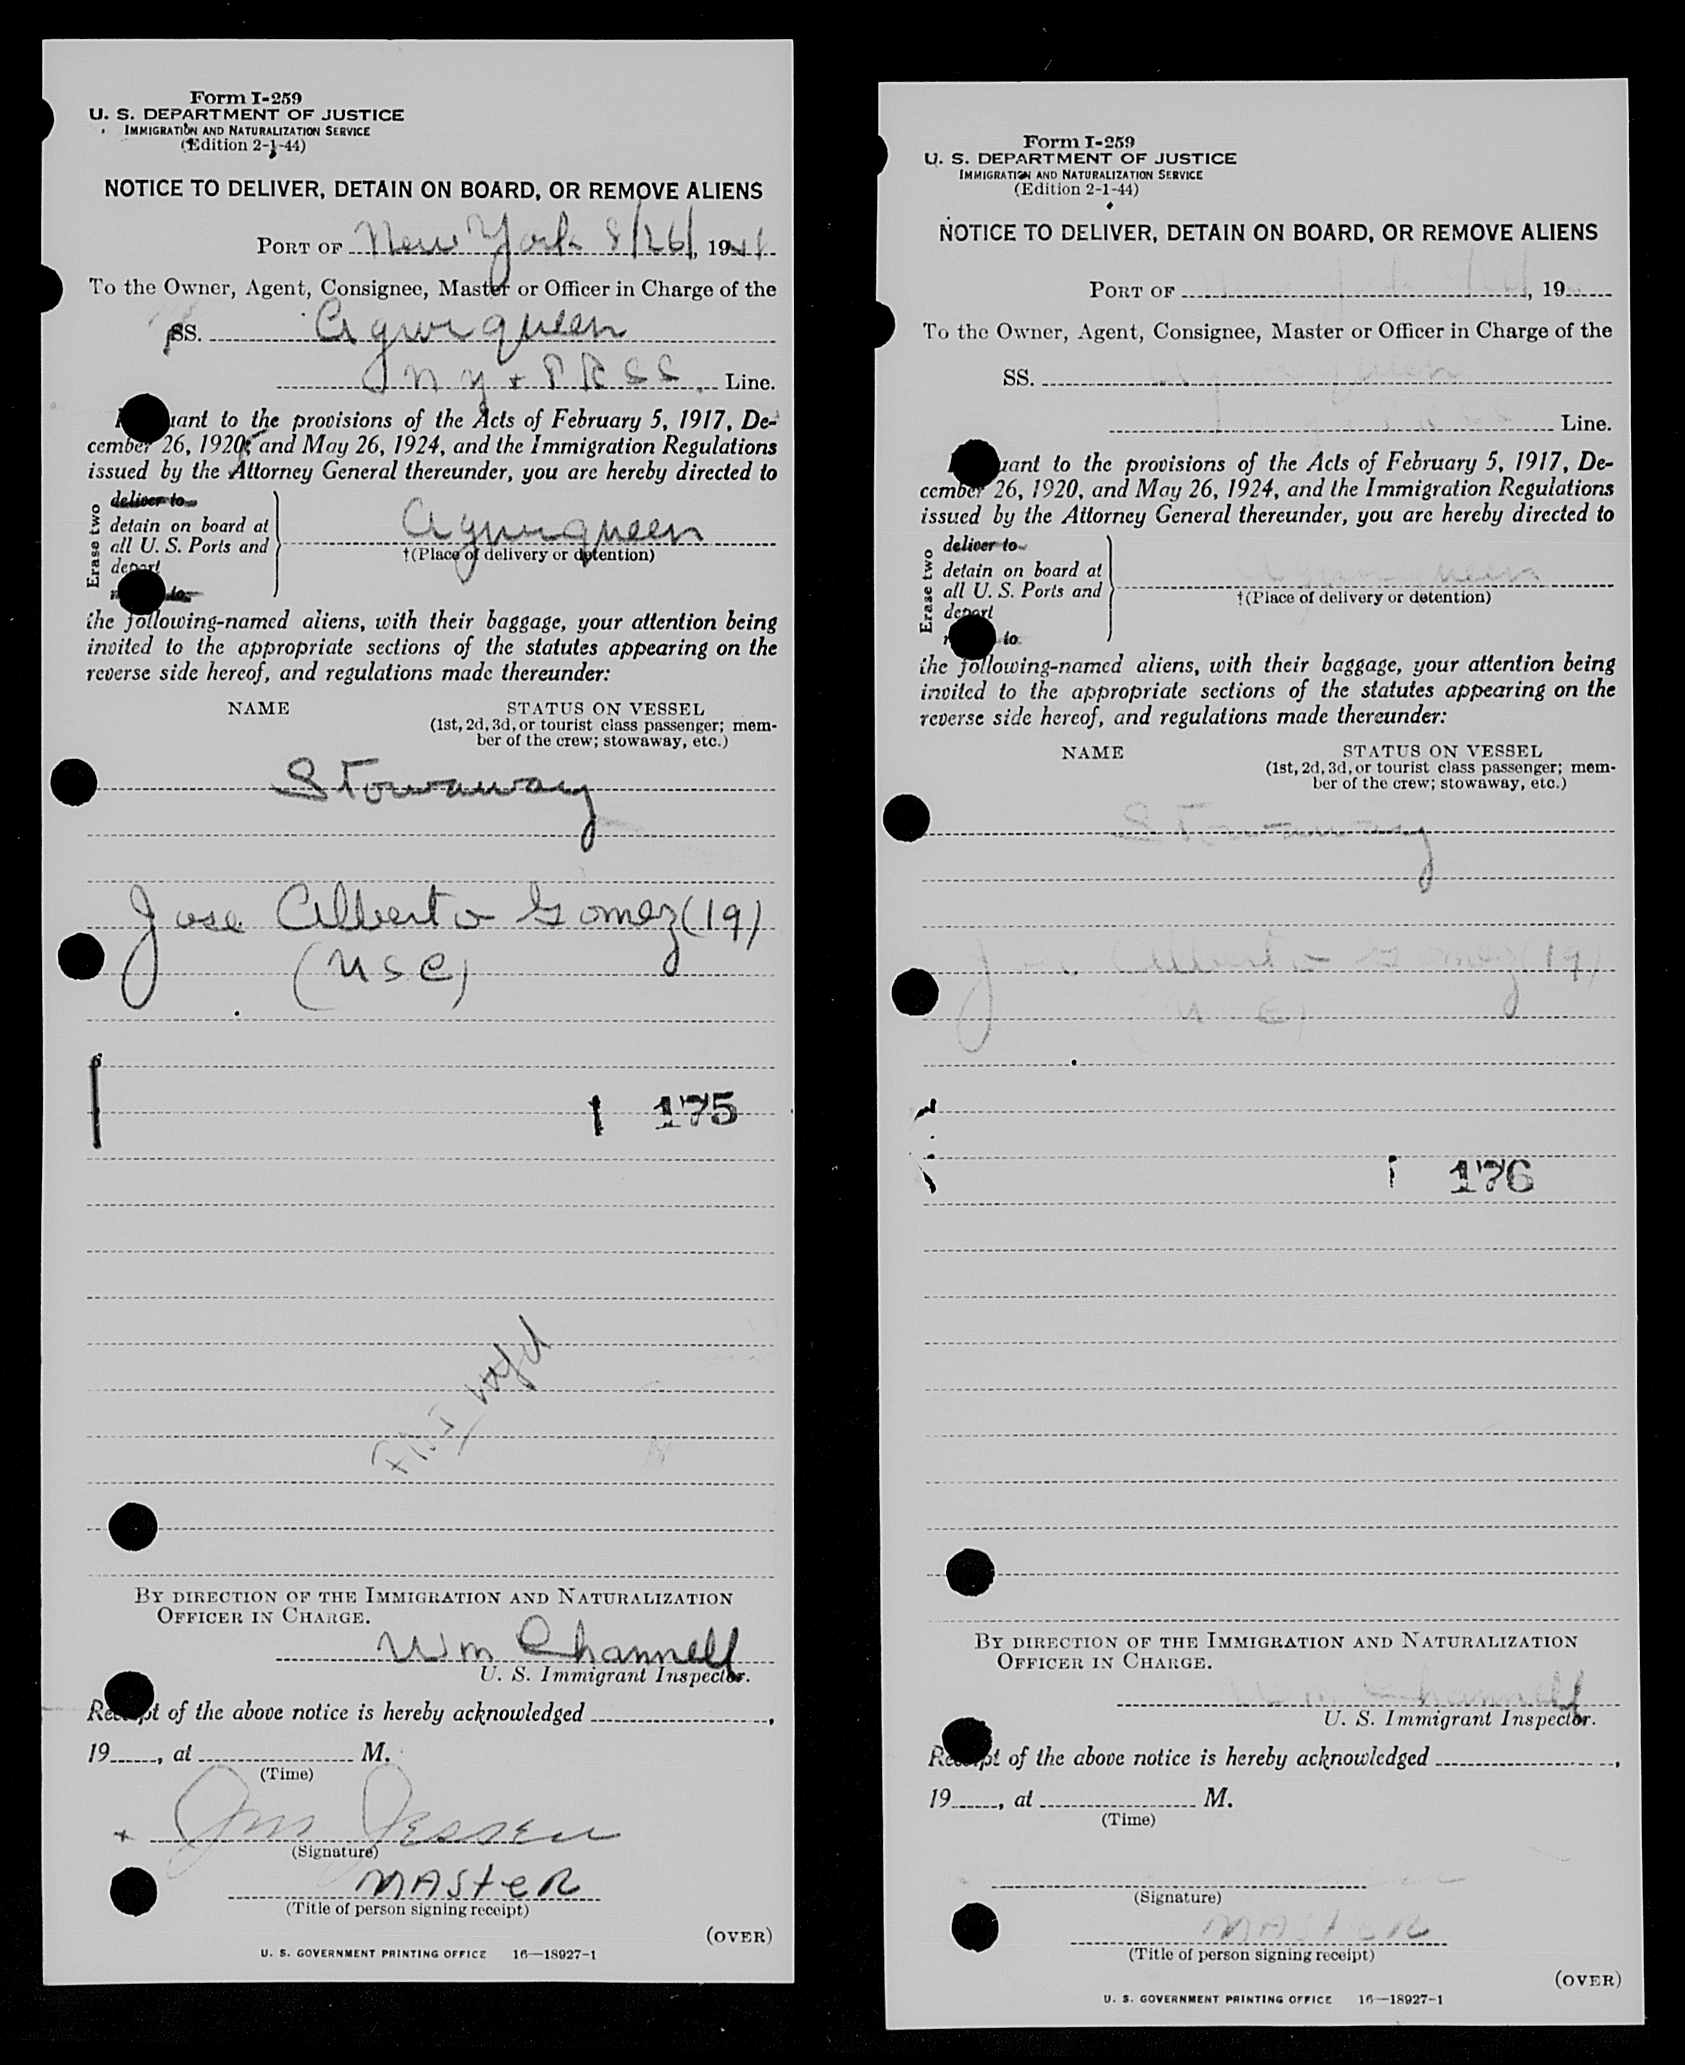 Form I-259
U. S. DEPARTMENT OF JUSTICE
IMMIGRATION AND NATURALIZATION SERVICE
(Edition 2-1-44)
NOTICE TO DELIVER, DETAIN ON BOARD, OR REMOVE ALIENS
PORT OF New York 8/26/, 19
To the Owner, Agent, Consignee, Master or Officer in Charge of the
SS. Agwiqueen
N Y + P R S S. Line.
uant to the provisions of the Acts of February 5, 1917, De-
cember 26, 1920, and May 26, 1924, and the Immigration Regulations
issued by the Attorney General thereunder, you are hereby directed to
Erase two
deliver to
detain on board at
all U. S. Ports and
depart
to
Agwiqueen
†(Place of delivery or detention)
the following-named aliens, with their baggage, your attention being
invited to the appropriate sections of the statutes appearing on the
reverse side hereof, and regulations made thereunder:
NAME STATUS ON VESSEL
(1st, 2d, 3d, or tourist class passenger; mem-
ber of the crew; stowaway, etc.)
Stowaway
Jose Alberto Gomez (19)
(USC)
175
BY DIRECTION OF THE IMMIGRATION AND NATURALIZATION
OFFICER IN CHARGE.
Wm Channell
U. S. Immigrant Inspector.
Receipt of the above notice is hereby acknowledged ,
19 , at M.
(Time)
Jessen
(Signature)
MASteR
(Title of person signing receipt)
(OVER)
U. S. GOVERNMENT PRINTING OFFICE 16—18927-1
Form I-259
U. S. DEPARTMENT OF JUSTICE
IMMIGRATION AND NATURALIZATION SERVICE
(Edition 2-1-44)
NOTICE TO DELIVER, DETAIN ON BOARD, OR REMOVE ALIENS
PORT OF , 19
To the Owner, Agent, Consignee, Master or Officer in Charge of the
SS.
Line.
uant to the provisions of the Acts of February 5, 1917, De-
cember 26, 1920, and May 26, 1924, and the Immigration Regulations
issued by the Attorney General thereunder, you are hereby directed to
Erase two
deliver to
detain on board at
all U. S. Ports and
depart
to
†(Place of delivery or detention)
the following-named aliens, with their baggage, your attention being
invited to the appropriate sections of the statutes appearing on the
reverse side hereof, and regulations made thereunder:
NAME STATUS ON VESSEL
(1st, 2d, 3d, or tourist class passenger; mem-
ber of the crew; stowaway, etc.)
Stowaway
Alberto Gomez (19)
176
BY DIRECTION OF THE IMMIGRATION AND NATURALIZATION
OFFICER IN CHARGE.
Wm Channell
U. S. Immigrant Inspector.
Receipt of the above notice is hereby acknowledged ,
19 , at M.
(Time)
(Signature)
MASteR
(Title of person signing receipt)
(OVER)
U. S. GOVERNMENT PRINTING OFFICE 16—18927-1